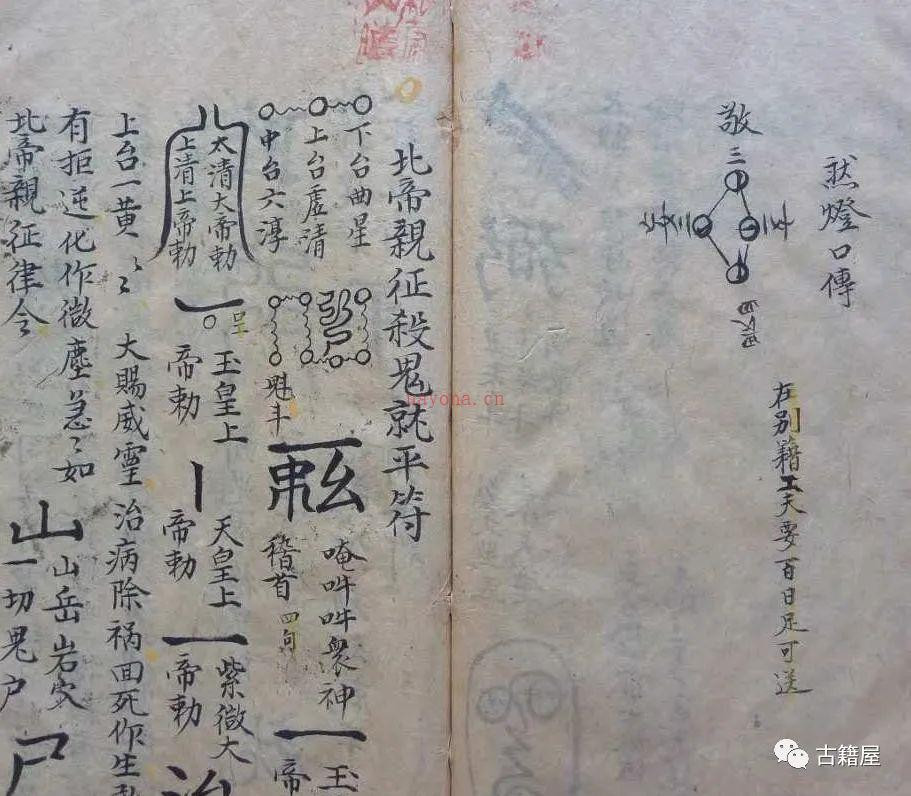 燃燈口傳
在别籍工夫要百日足可送
敬
三
北帝親征殺鬼就平符
下台曲星
上台虛清
中台六淳
魁斗
唵吽吽衆神
稽首四句
玉
帝
太清大帝勅
上清上帝勅
呈
玉皇上
帝勅
天皇上
帝勅
紫微大
帝勅
治
上台一黄〻〻
大賜威靈治病除禍回死作生
有拒逆化作微塵急〻如
北帝親征律令
山
山岳岩穴
一切鬼户
尸
nayona.cn
古籍屋